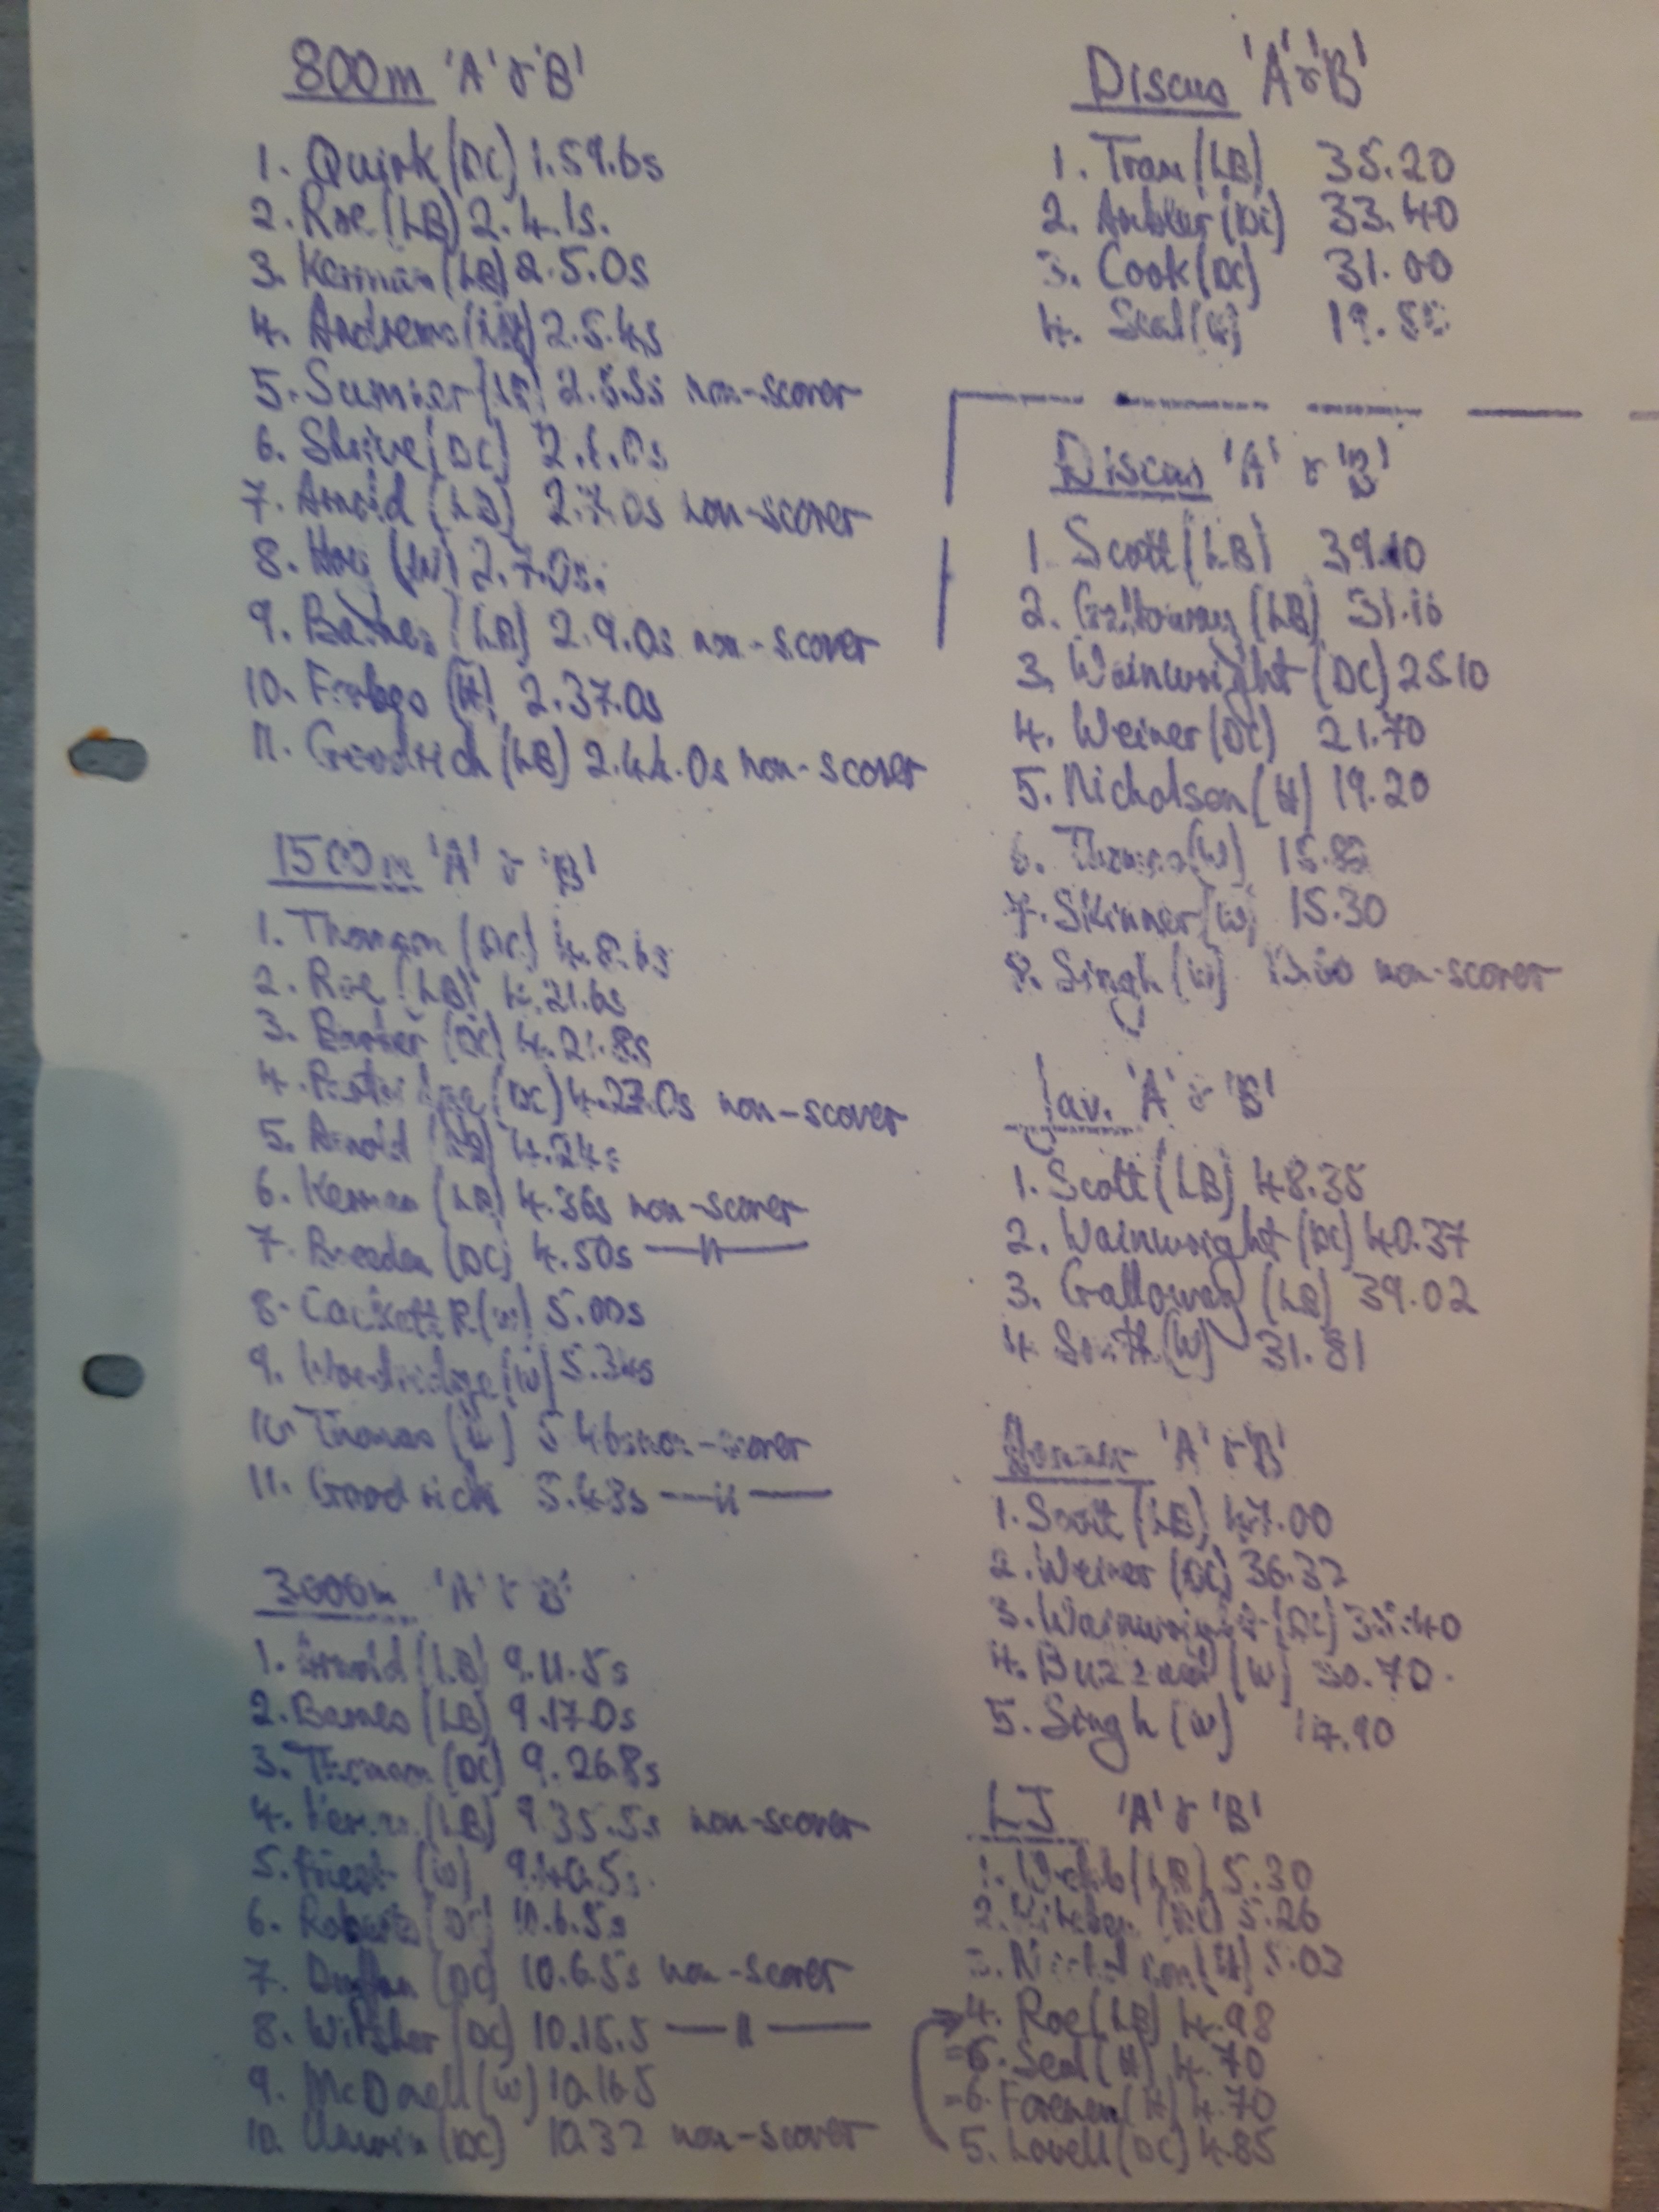 800m 'A' & 'B'
1. Quirk (DC) 1.59.6s
2. Roe (LB) 2.4.1s.
3. Kerman (LB) 2.5.0s
4. Andrews 2.5.4s
5. Sumner (LB) 2.5.5s non-scorer
6. Shrive (DC) 2.6.0s
7. Arnold (LB) 2.7.0s non-scorer
8. (W) 2.7.0s.
9. Barnes (LB) 2.9.0s non-scorer
10. (H) 2.37.0s
11. Goodrich (LB) 2.44.0s non-scorer
1500m 'A' & 'B'
1. Thomson (DC) 4.8.6s
2. Roe (LB) 4.21.6s
3. (DC) 4.21.8s
4. (DC) 4.23.0s non-scorer
5. Arnold (LB) 4.24s
6. Kerman (LB) 4.36s non-scorer
7. Breeden (DC) 4.50s —"—
8. Cackett R. (W) 5.00s
9. (W) 5.34s
10. Thomas 5.46s non-scorer
11. Goodrich 5.43s —"—
3000m 'A' & 'B'
1. Arnold (LB) 9.11.5s
2. Barnes (LB) 9.17.0s
3. (DC) 9.26.8s
4. (LB) 9.35.5s non-scorer
5. (W) 9.40.5s
6. Roberts (DC) 10.6.5s
7. (DC) 10.6.5s non-scorer
8. Wiltsher (DC) 10.15.5 —"—
9. McDonell (W) 10.16.5
10. Unwin (DC) 10.32 non-scorer
Discus 'A' & 'B'
1. Tran (LB) 35.20
2. Ambler (DC) 33.40
3. Cook (DC) 31.00
4. Seal
Discus 'A' & 'B'
1 Scott (LB) 39.10
2. Galloway (LB) 31.16
3. Wainwright (DC) 25.10
4. Weiner (DC) 21.70
5. Nicholson (H) 19.20
6. Thomas (W)
7. Skinner (W) 15.30
8. Singh (W) non-scorer
Jav. 'A' & 'B'
1. Scott (LB) 48.35
2. Wainwright (DC) 40.37
3. Galloway (LB) 39.02
4. Smith (W) 31.81
Hammer 'A' & 'B'
1. Scott (LB) 47.00
2. Weiner (DC) 36.32
3. Wainwright (DC)
4. (W) 30.70.
5. Singh (W) 14.90
LJ 'A' & 'B'
1. Webb (LB) 5.30
2. (DC) 5.26
3. Nicholson (H) 5.03
4. Roe (LB) 4.98
=6. Seal (H) 4.70
=6. Foreman (H) 4.70
5. Lovell (DC) 4.85